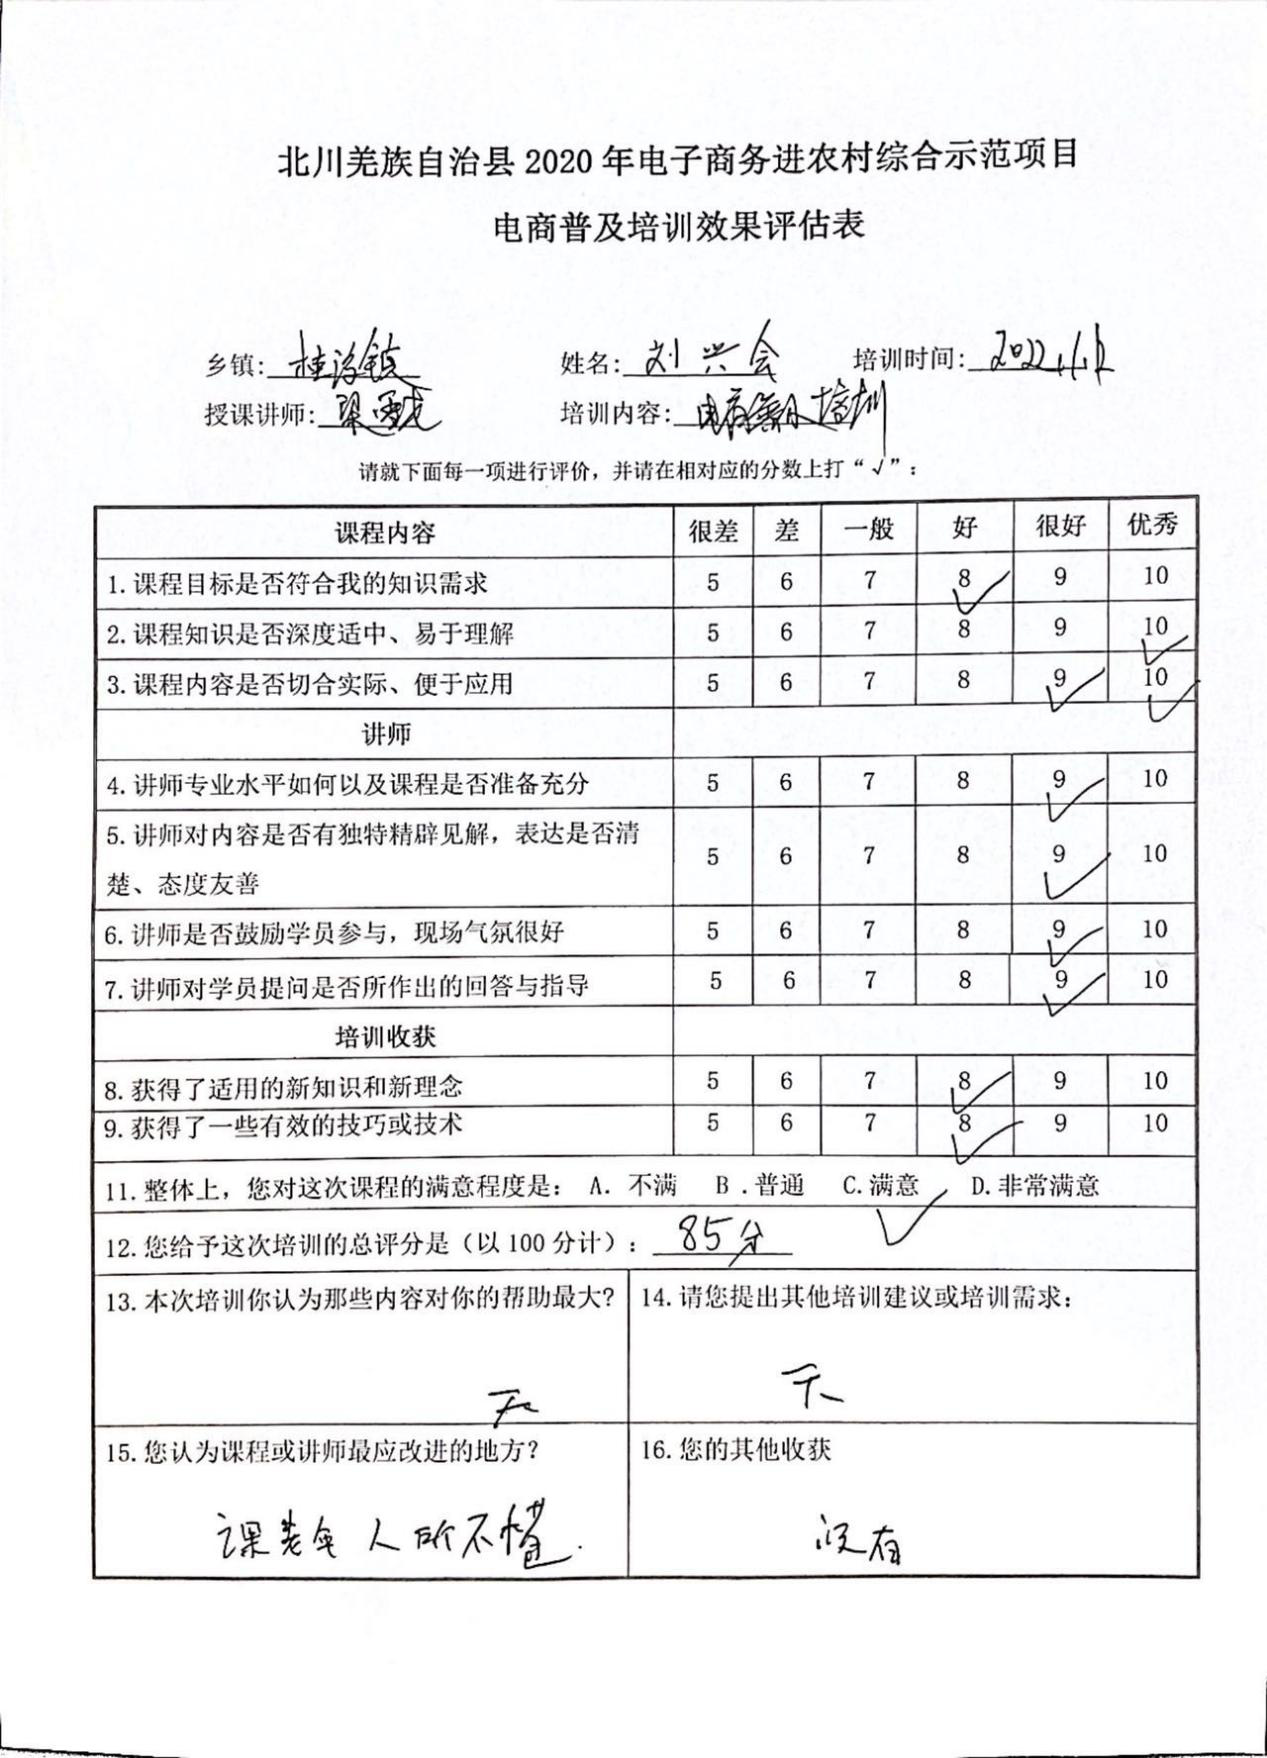 北川羌族自治县 2020 年电子商务进农村综合示范项目
电商普及培训效果评估表
乡镇: 姓名: 刘兴会 培训时间:
授课讲师: 培训内容: 培训
请就下面每一项进行评价，并请在相对应的分数上打“√”：
课程内容 很差 差 一般 好 很好 优秀
1.课程目标是否符合我的知识需求 5 6 7 8 ✓ 9 10
2.课程知识是否深度适中、易于理解 5 6 7 8 9 10 ✓
3.课程内容是否切合实际、便于应用 5 6 7 8 9 ✓ 10 ✓
讲师
4.讲师专业水平如何以及课程是否准备充分 5 6 7 8 9 ✓ 10
5.讲师对内容是否有独特精辟见解，表达是否清
楚、态度友善 5 6 7 8 9 ✓ 10
6.讲师是否鼓励学员参与，现场气氛很好 5 6 7 8 9 ✓ 10
7.讲师对学员提问是否所作出的回答与指导 5 6 7 8 9 ✓ 10
培训收获
8.获得了适用的新知识和新理念 5 6 7 8 ✓ 9 10
9.获得了一些有效的技巧或技术 5 6 7 8 ✓ 9 10
11.整体上，您对这次课程的满意程度是： A．不满 B .普通 C.满意 ✓ D.非常满意
12.您给予这次培训的总评分是（以 100 分计）: 85分
13.本次培训你认为那些内容对你的帮助最大?
无
14.请您提出其他培训建议或培训需求:
15.您认为课程或讲师最应改进的地方?
课老年人所不懂.
16.您的其他收获
没有